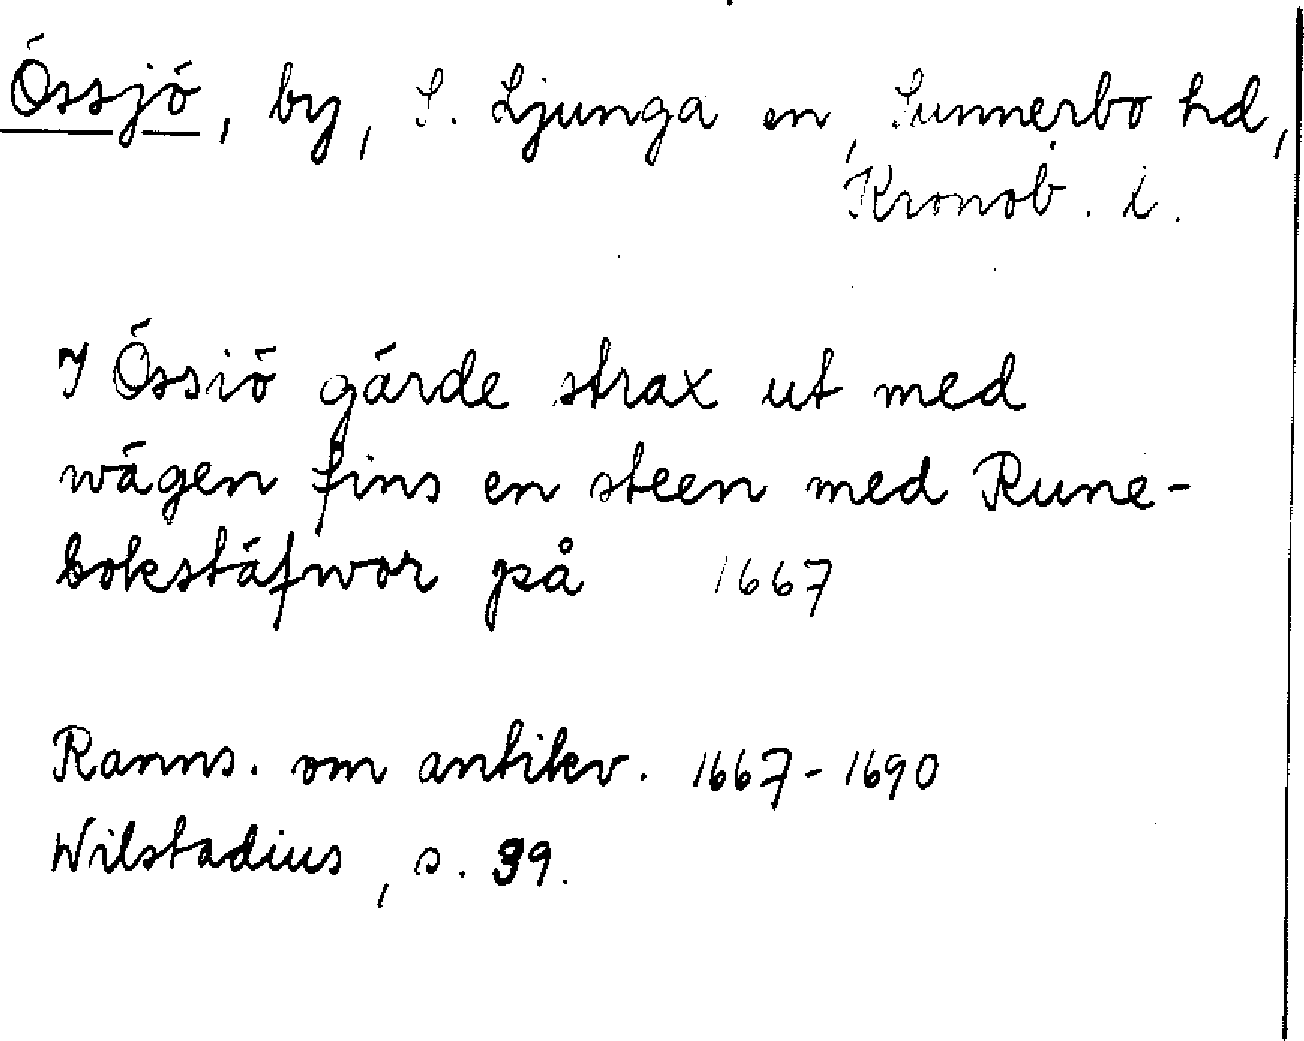 Össjö, by, S. Ljunga sn, Sunnerbo hd,
Kronob. l.
I Össiö gärde strax ut med
wägen fins en steen med Rune-
bokstäfwor på 1667
Ranns. om antikv. 1667-1690
Wilstadius, s. 39.